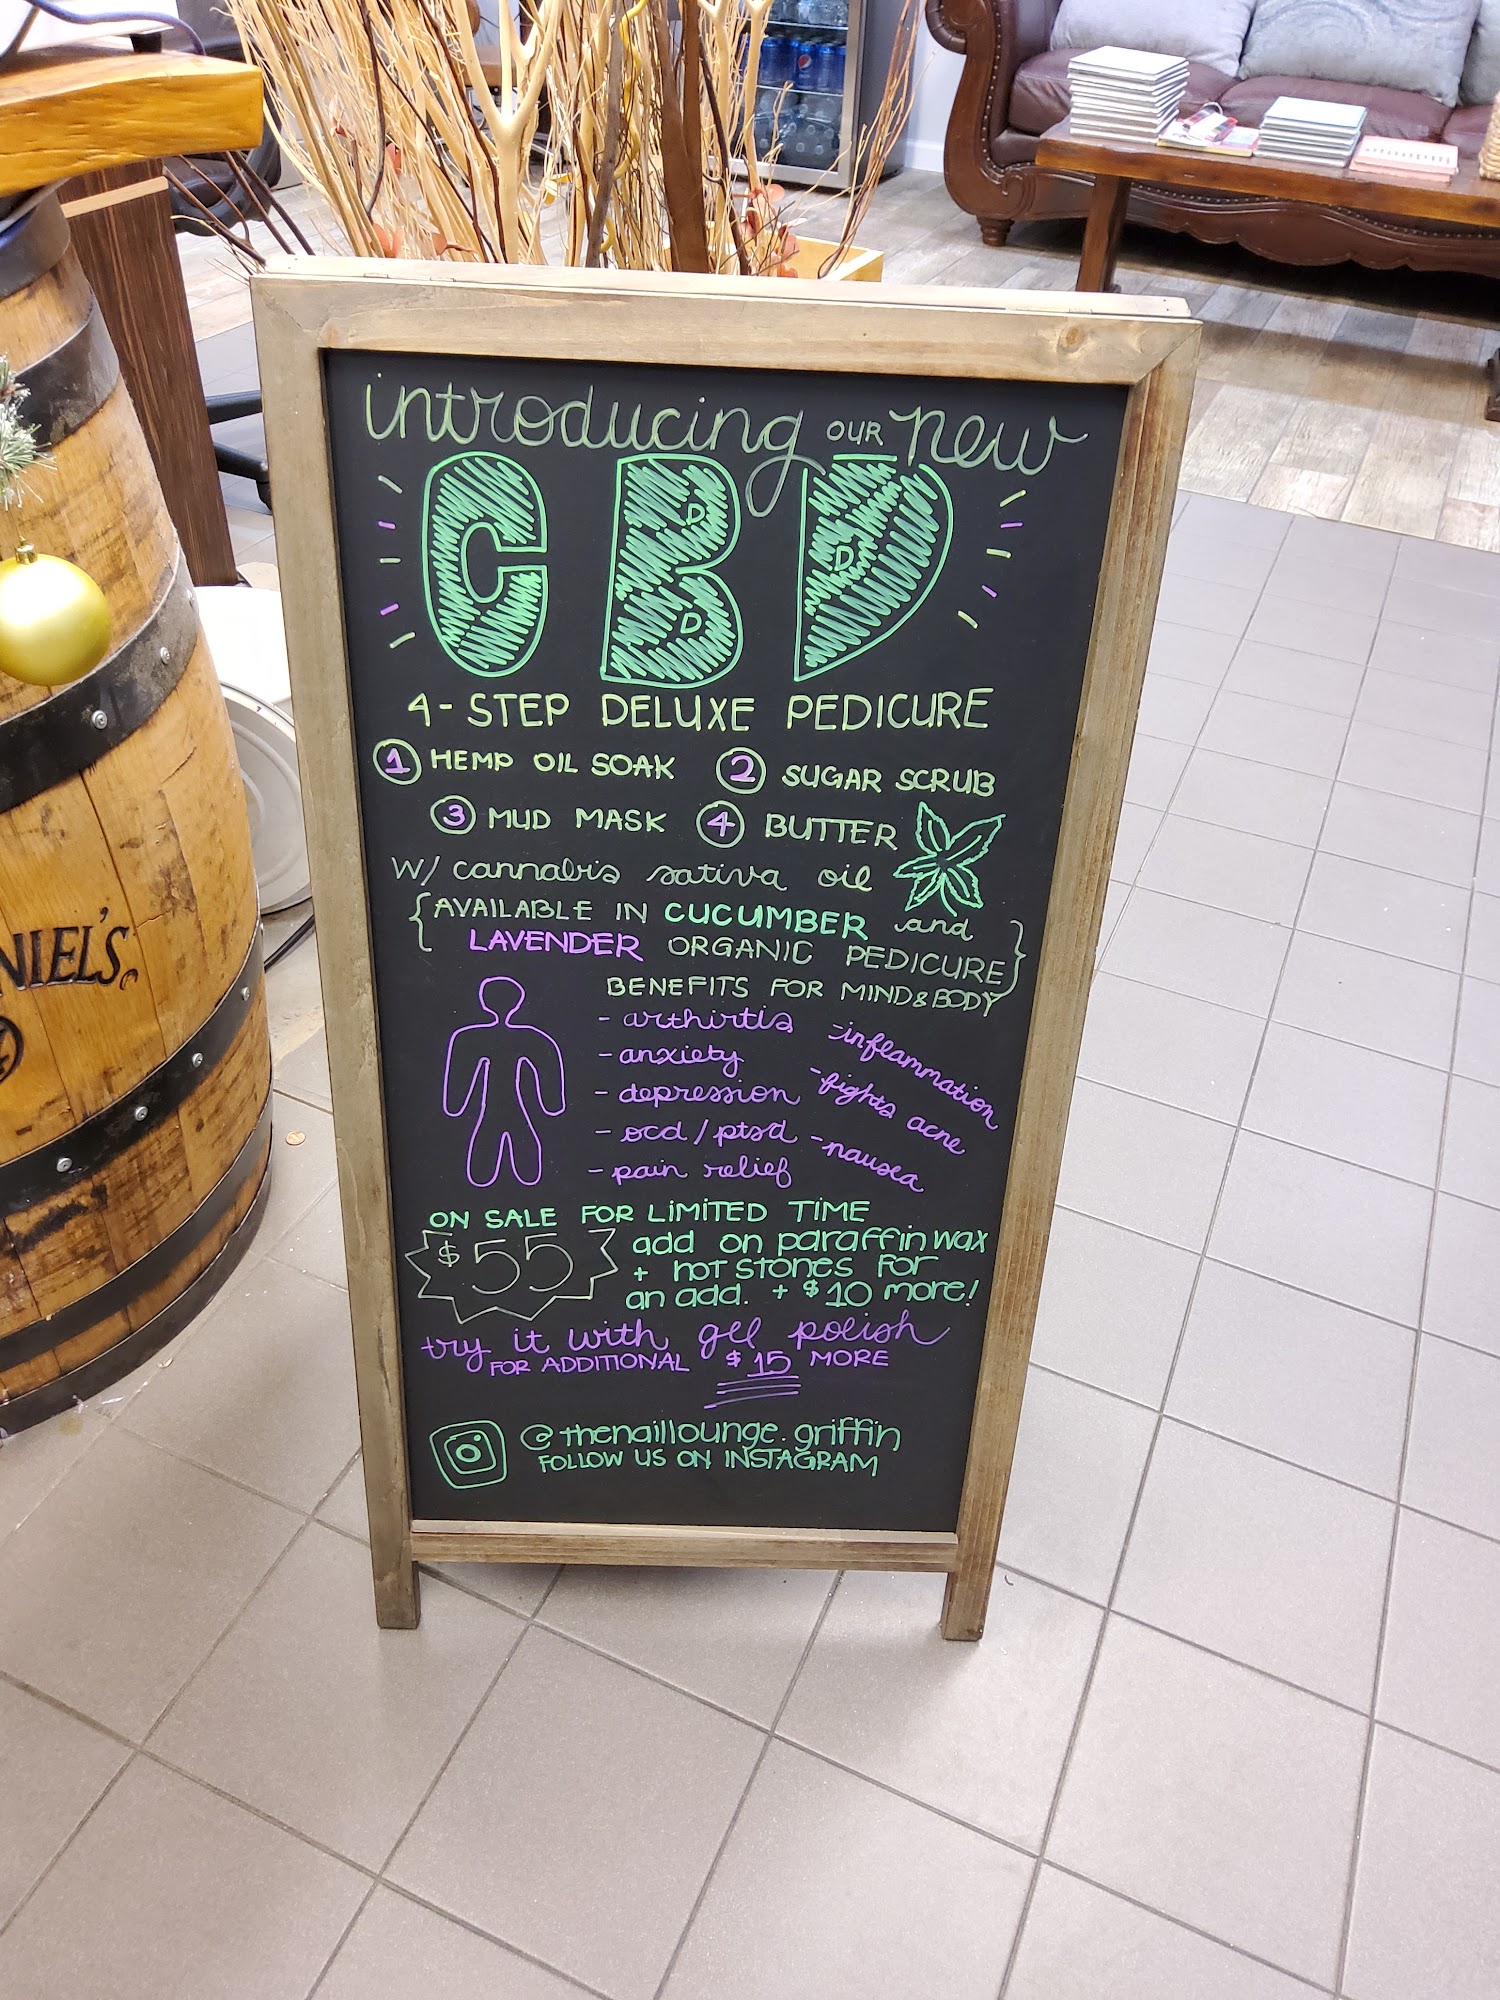 introducing OUR new
CBD
4-STEP DELUXE PEDICURE
1 HEMP OIL SOAK 2 SUGAR SCRUB
3 MUD MASK 4 BUTTER
W/ cannabis sativa oil
{AVAILABLE IN CUCUMBER and
LAVENDER ORGANIC PEDICURE}
BENEFITS FOR MIND&BODY
- arthirtis
- anxiety
- depression
- ocd/ptsd
- pain relief
- inflammation
- fights acne
- nausea
ON SALE FOR LIMITED TIME
$55
add on paraffin wax
+ hot stones for
an add. + $10 more!
try it with gel polish
FOR ADDITIONAL $15 MORE
@thenaillounge.griffin
FOLLOW US ON INSTAGRAM
NIEL'S